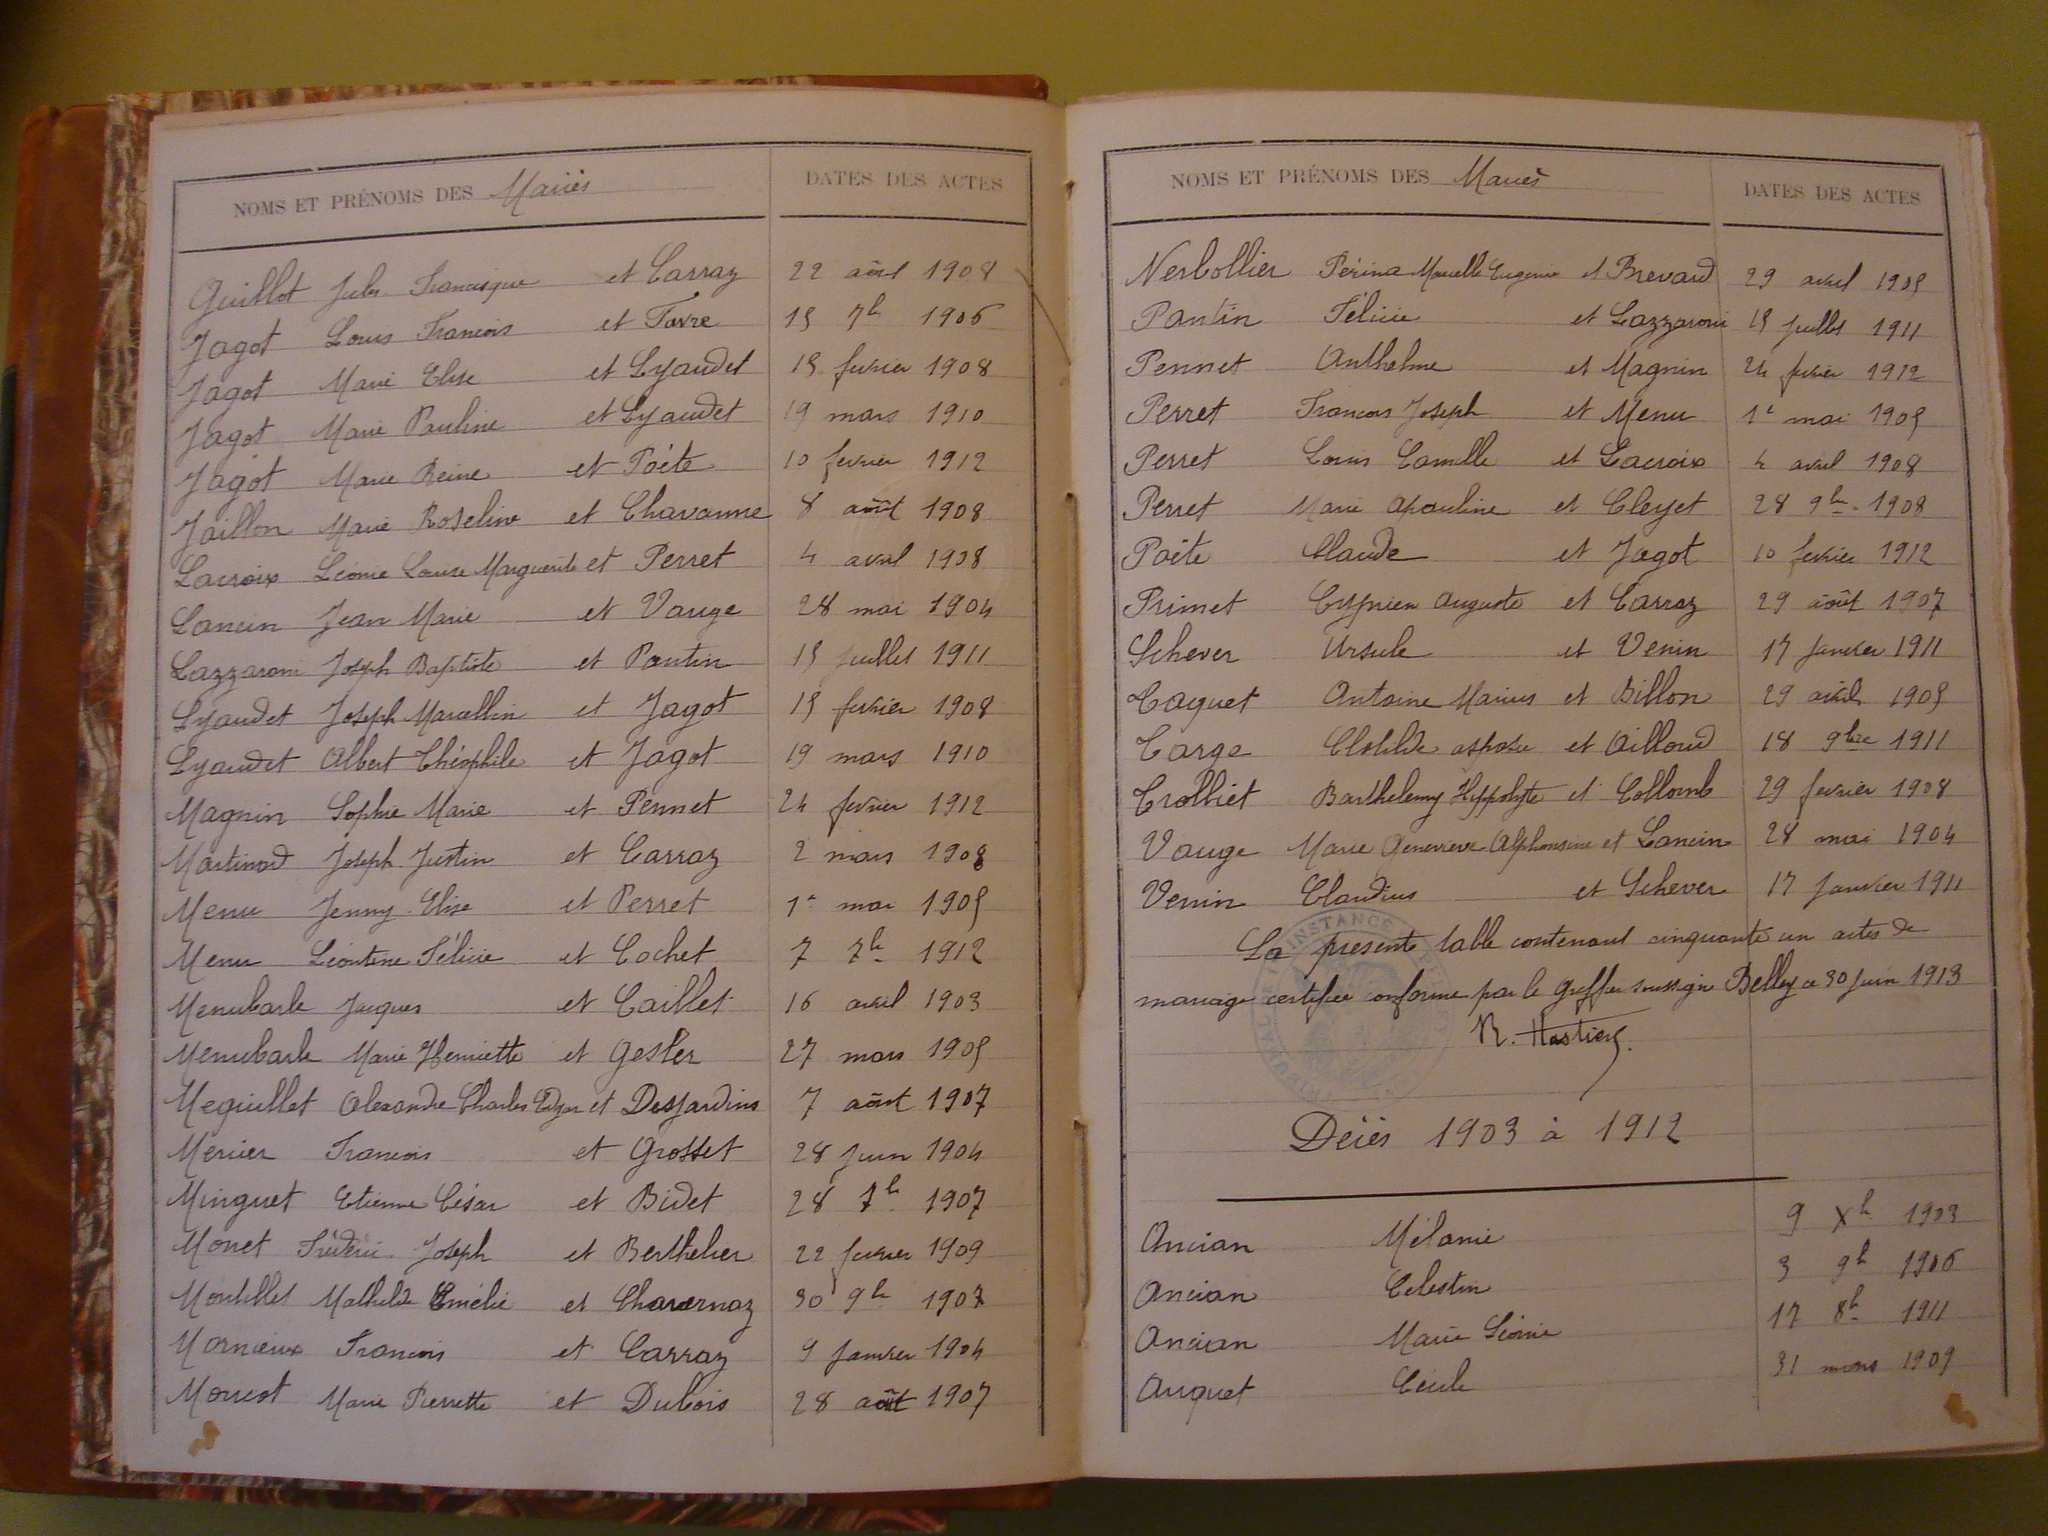 NOMS ET PRÉNOMS DES Mariés DATES DES ACTES
Guillot Jules Francisque et Carraz 22 août 1908
Jagot Louis François et Favre 15 7b 1906
Jagot Marie Elise et Lyaudet 15 fevrier 1908
Jagot Marie Pauline et Lyaudet 19 mars 1910
Jagot Marie Reine et Poëte 10 fevrier 1912
Jaillon Marie Roseline et Chavanne 8 août 1908
Lacroix Léonie Louise Marguerite et Perret 4 avril 1908
Lancin Jean Marie et Vauge 28 mai 1904
Lazzaroni Joseph Baptiste et Pantin 15 juillet 1911
Lyaudet Joseph Marcellin et Jagot 15 fevrier 1908
Lyaudet Albert Théophile et Jagot 19 mars 1910
Magnin Sophie Marie et Pennet 24 fevrier 1912
Martinod Joseph Justin et Carraz 2 mars 1908
Menu Jenny Elise et Perret 1r mai 1905
Menu Léontine Félicie et Cochet 7 7b 1912
Menubarbe Jacques et Caillet 16 avril 1903
Menubarbe Marie Henriette et Gesler 27 mars 1905
Meguillet Alexandre Charles Edgar et Desjardins 7 août 1907
Mercier François et Grosset 28 juin 1904
Minguet Etienne César et Bidet 28 7b 1907
Monet Fréderic Joseph et Berthelier 22 fevrier 1909
Montillet Mathilde Emélie et Charvernaz 30 9b 1907
Mornieux François et Carraz 9 janvier 1904
Mourot Marie Pierrette et Dubois 28 août 1907
NOMS ET PRÉNOMS DES Mariés DATES DES ACTES
Nerbollier Périna Marcelle Eugenie et Brevard 29 avril 1905
Pantin Félicie et Lazzaroni 15 juillet 1911
Pennet Anthelme et Magnin 24 fevrier 1912
Perret François Joseph et Menu 1r mai 1905
Perret Louis Camille et Lacroix 4 avril 1908
Perret Marie Apauline et Cleyet 28 9bre 1908
Poëte Claude et Jagot 10 fevrier 1912
Primet Cyprien Auguste et Carraz 29 août 1907
Schever Ursule et Venin 17 janvier 1911
Taquet Antoine Marius et Billon 29 1905
Targe Clotilde et Ailloud 18 9bre 1911
Trolliet Barthelemy Hippolyte et Collomb 29 fevrier 1908
Vauge Marie Genevieve Alphonsine et Lancin 28 mai 1904
Venin Claudius et Schever 17 janvier 1911
La présente table contenant cinquante un actes de
mariage certifiée conforme par le greffier soussigné Belley ce 30 juin 1913
Décès 1903 à 1912
Ancian Mélanie 9 Xb 1903
Ancian Celestin 3 9b 1906
Ancian Marie Léonie 17 8b 1911
Auguet Cécile 31 mars 1909